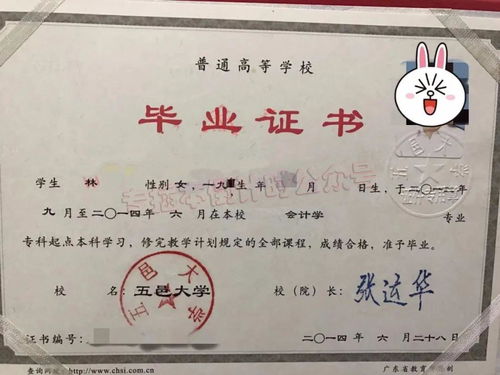 普通高等学校
毕业证书
学生 林 性别 女，一九 生 年 月 日生，于二〇一二年
九 月至二〇一四年 六 月在本校 会计学 专业
专科起点本科学习，修完教学计划规定的全部课程，成绩合格，准予毕业。
校 名：五邑大学 校（院）长：张运华
五邑大学
证书编号： 二〇一四年 六 月二十八日
www.chsi.com.cn 广东省教育